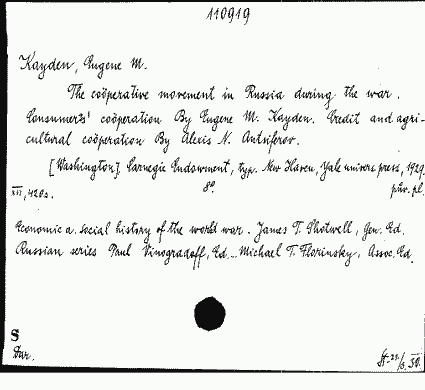 110919
Kayden, Eugene M.
The coöperative movement in Russia during the war.
Consumers' coöperation By Eugene M. Kayden. Credit and agri-
cultural coöperation By Alexis N. Antsiferov.
[Washington], Carnegie Endowment, typ. New Haven, Yale univers press, 1929.
XVI, 420 s. 8º. pův. pl.
Economic a. social history of the world war. James T. Shotwell, Gen. Ed.
Russian series Paul Vinogradoff, Ed... Michael T. Florinsky, Assoc. Ed.
S
Dar.